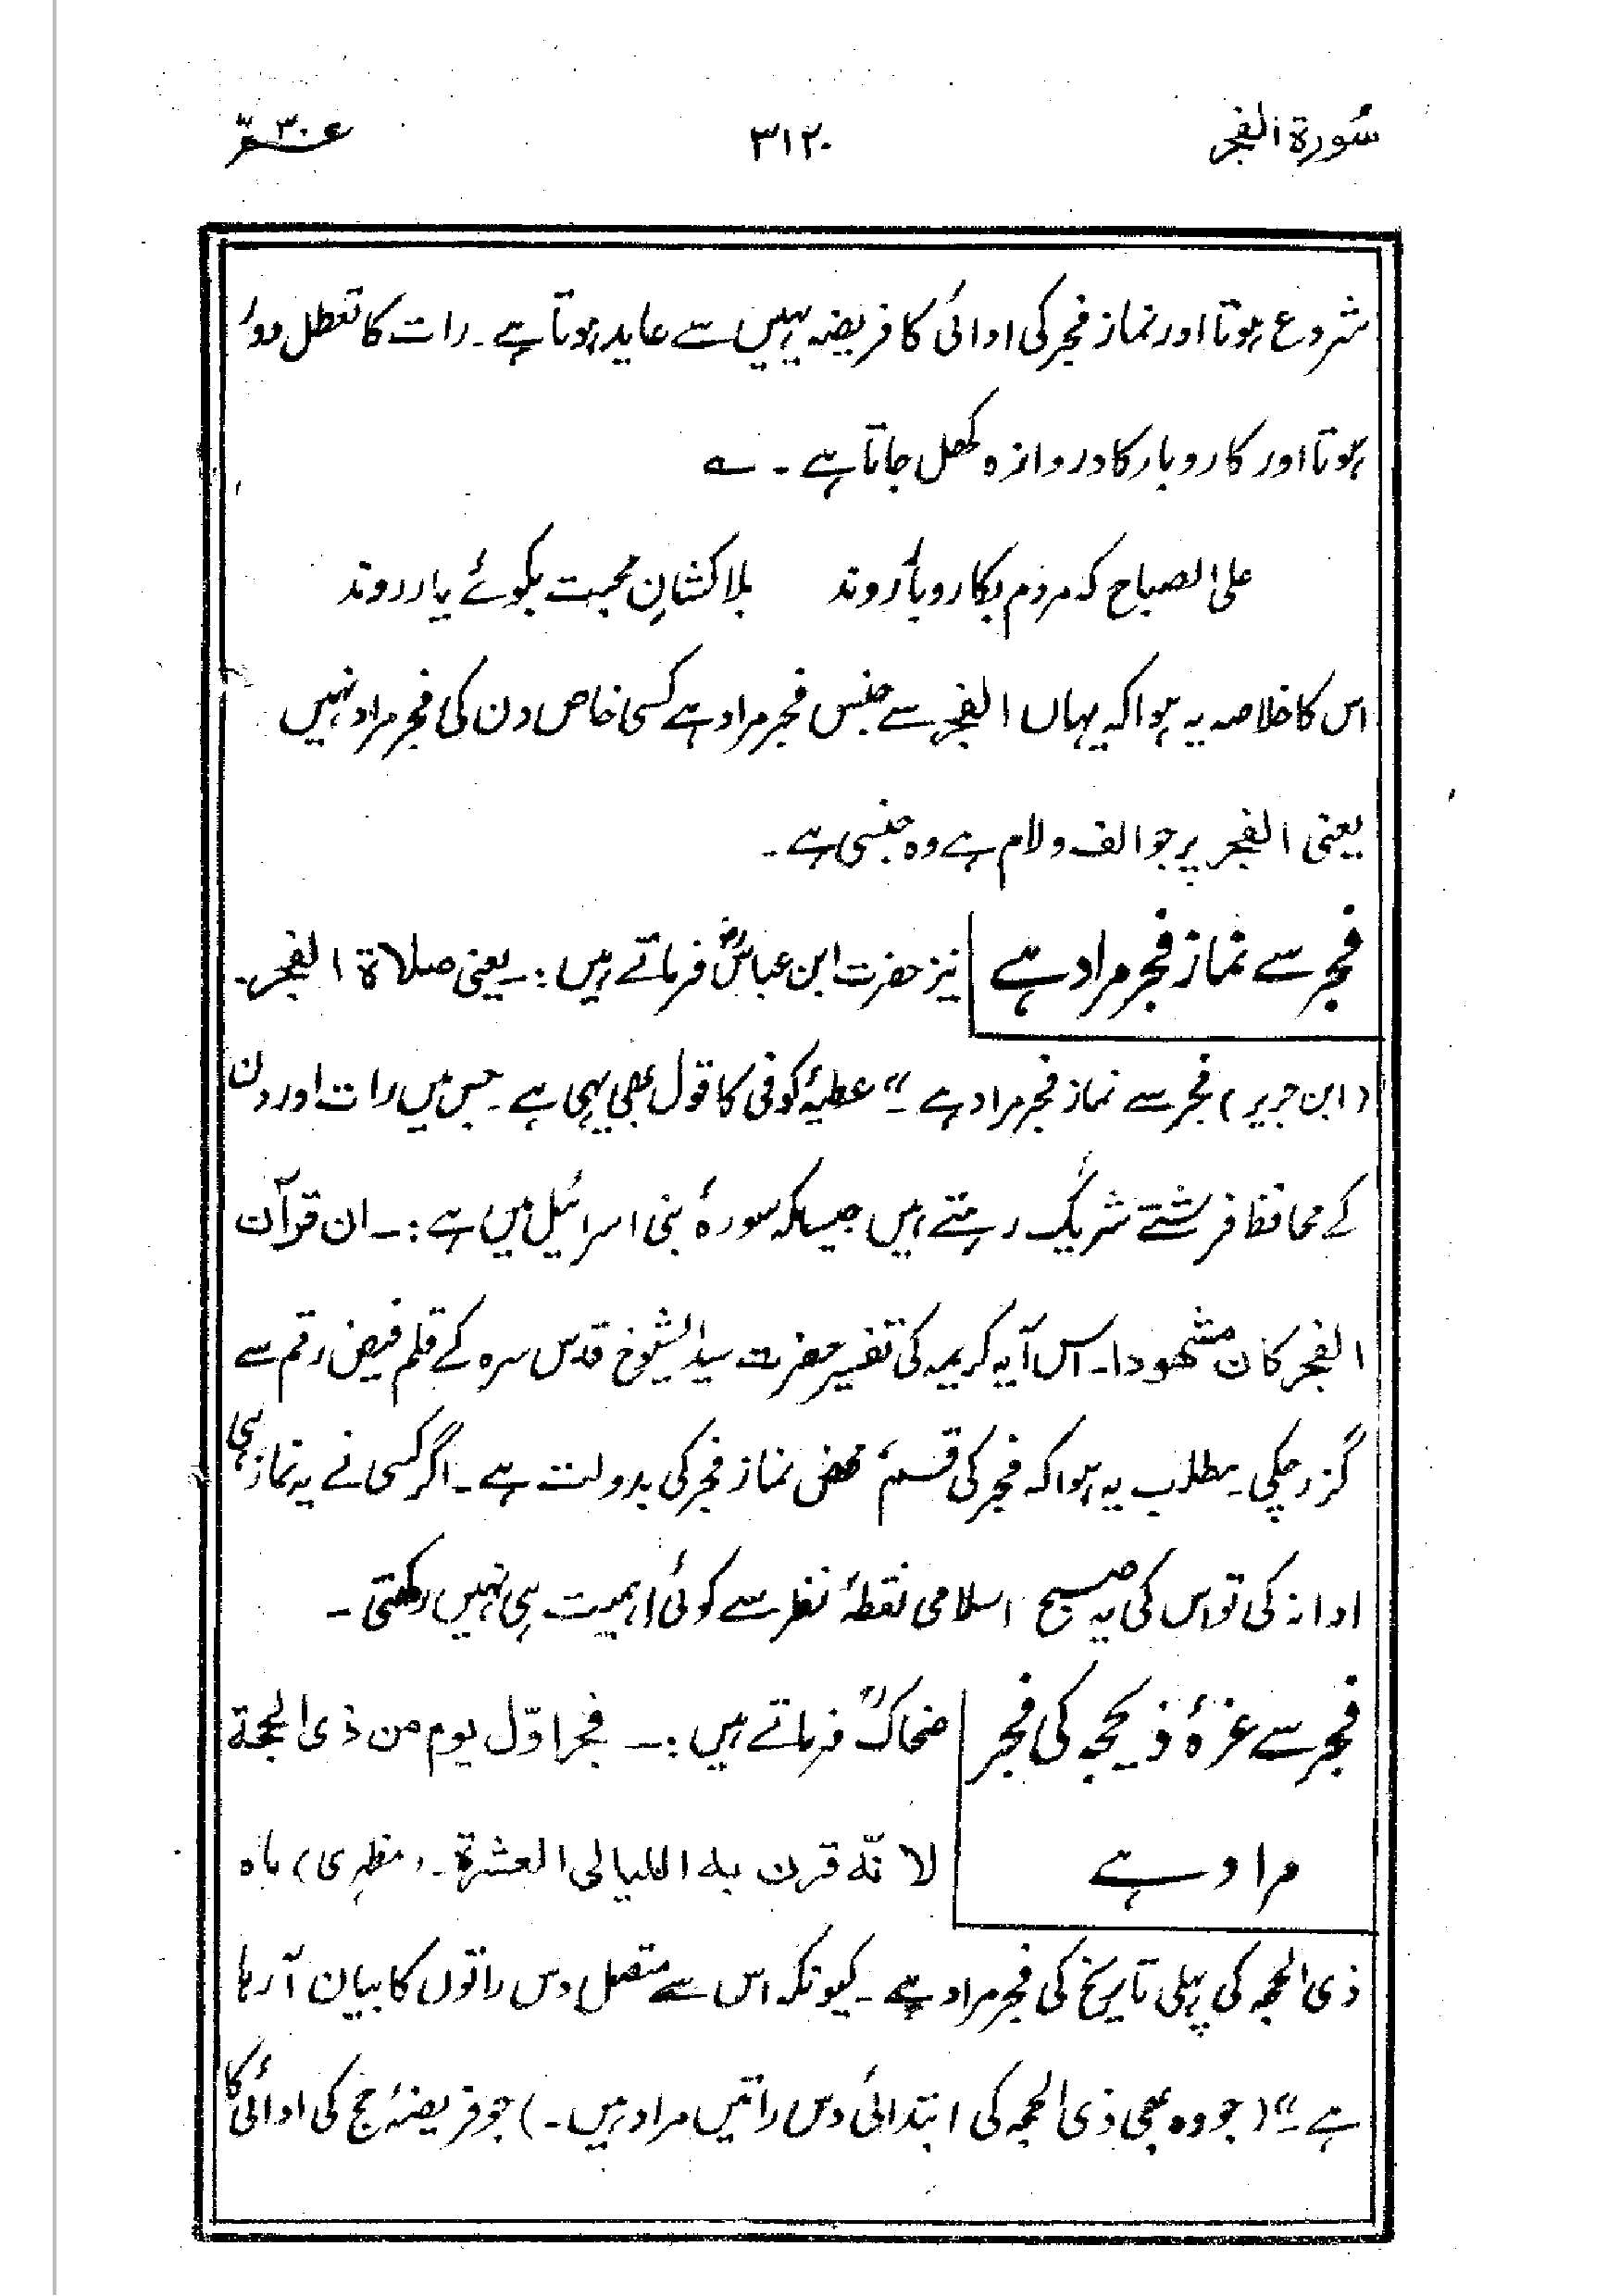 سُورة الفجر
۳۱۲۰
عم ۳۰
شروع ہوتا اور نماز فجر کی ادائی کا فریضہ یہیں سے عاید ہوتا ہے۔ رات کا تعطل دور
ہوتا اور کاروبار کا دروازہ کھل جاتا ہے۔ ؎
علی الصباح کہ مردم بکاروبار روند بلا کشانِ محبت بکوئے یار روند
اس کا خلاصہ یہ ہوا کہ یہاں الفجر سے جنس فجر مراد ہے کسی خاص دن کی فجر مراد نہیں
یعنی الفجر پر جو الف ولام ہے وہ جنسی ہے۔
فجر سے نماز فجر مراد ہے نیز حضرت ابن عباسؓ فرماتے ہیں:۔ یعنی صلاة الفجر۔
(ابن جریر) فجر سے نماز فجر مراد ہے۔" عطیۂ کوفی کا قول بھی یہی ہے۔ جس میں رات اور دن
کے محافظ فرشتے شریک رہتے ہیں جیسا کہ سورۂ بنی اسرائیل میں ہے:۔ ان قرآن
الفجر کان مشھودا۔ اس آیہ کریمہ کی تفسیر حضرت سید الشیوخ قدس سرہ کے قلم فیض رقم سے
گزر چکی۔ مطلب یہ ہوا کہ فجر کی قسم محض نماز فجر کی بدولت ہے۔ اگر کسی نے یہ نماز ہی
ادا نہ کی تو اس کی یہ صبح اسلامی نقطۂ نظر سے کوئی اہمیت ہی نہیں رکھتی۔
فجر سے غرۂ ذیحجہ کی فجر ضحاکؒ فرماتے ہیں:۔ فجر اوّل یوم من ذی الحجة
مراد ہے لانّہ قرن بہ اللیالی العشرة۔ (مظہری) ماہ
ذی الحجہ کی پہلی تاریخ کی فجر مراد ہے۔ کیونکہ اس سے متصل دس راتوں کا بیان آرہا
ہے۔" (جو وہ بھی ذی الحجہ کی ابتدائی دس راتیں مراد ہیں۔) جو فریضۂ حج کی ادائی کا